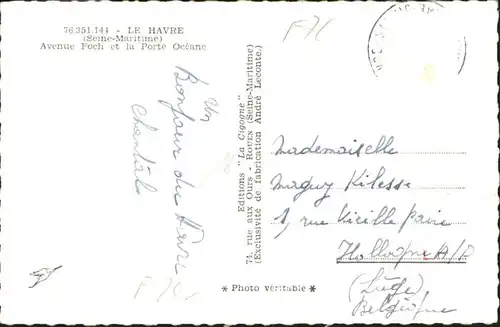 76.351.144 - LE HAVRE
(Seine-Maritime)
Avenue Foch et la Porte Océane
Un
Bonjour du Havre
Chantal
Editions "La Cigogne"
74, rue aux Ours - ROUEN (Seine-Maritime)
(Exclusivité de fabrication André Leconte.)
* Photo véritable *
Mademoiselle
Maguy Kilesse
1, rue Vieille paire
Hollogne A/P
(Liège)
Belgique